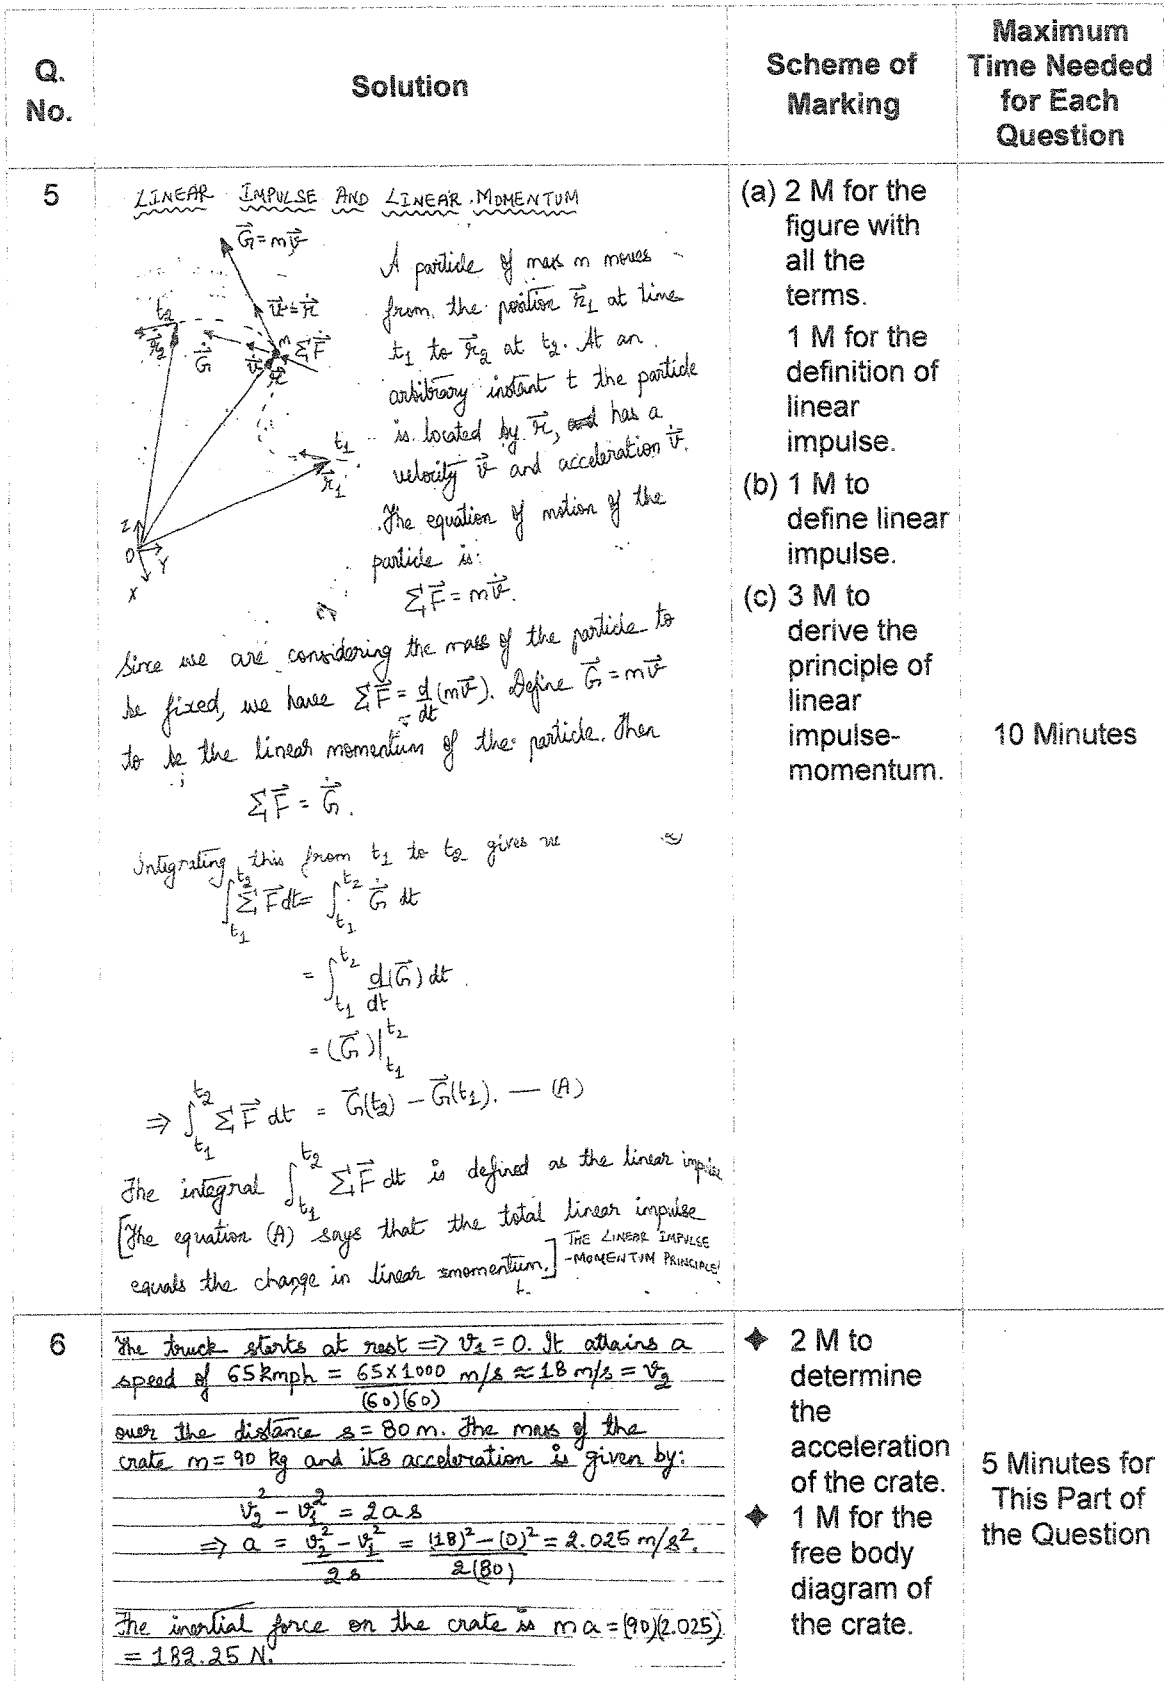 Q. No.
Solution
Scheme of Marking
Maximum Time Needed for Each Question
5
LINEAR IMPULSE AND LINEAR MOMENTUM
G⃗=mv⃗
v⃗=ṙ⃗
t₂
r⃗₂
Ġ⃗
v̇⃗
m
ΣF⃗
r⃗
t₁
r⃗₁
Z
O
Y
X
A particle of mass m moves
from the position r⃗₁ at time
t₁ to r⃗₂ at t₂. At an
arbitrary instant t the particle
is located by r⃗, and has a
velocity v⃗ and acceleration v̇⃗.
The equation of motion of the
particle is:
ΣF⃗ = mv̇⃗.
Since we are considering the mass of the particle to
be fixed, we have ΣF⃗ = d/dt (mv⃗). Define G⃗ = mv⃗
to be the linear momentum of the particle. Then
ΣF⃗ = Ġ⃗.
Integrating this from t₁ to t₂ gives us
∫_{t₁}^{t₂} ΣF⃗ dt = ∫_{t₁}^{t₂} Ġ⃗ dt
= ∫_{t₁}^{t₂} d/dt (G⃗) dt.
= (G⃗)|_{t₁}^{t₂}
⇒ ∫_{t₁}^{t₂} ΣF⃗ dt = G⃗(t₂) – G⃗(t₁). — (A)
The integral ∫_{t₁}^{t₂} ΣF⃗ dt is defined as the linear impulse
[The equation (A) says that the total linear impulse
equals the change in linear momentum.] THE LINEAR IMPULSE
-MOMENTUM PRINCIPLE
(a) 2 M for the
figure with
all the
terms.
1 M for the
definition of
linear
impulse.
(b) 1 M to
define linear
impulse.
(c) 3 M to
derive the
principle of
linear
impulse-
momentum.
10 Minutes
6
The truck starts at rest ⇒ v₁ = 0. It attains a
speed of 65 kmph = 65×1000/(60)(60) m/s ≈ 18 m/s = v₂
over the distance s = 80 m. The mass of the
crate m = 90 kg and its acceleration is given by:
v₂² – v₁² = 2as
⇒ a = (v₂² – v₁²)/2s = ((18)² – (0)²)/2(80) = 2.025 m/s².
The inertial force on the crate is ma = (90)(2.025)
= 182.25 N.
✦ 2 M to
determine
the
acceleration
of the crate.
✦ 1 M for the
free body
diagram of
the crate.
5 Minutes for
This Part of
the Question